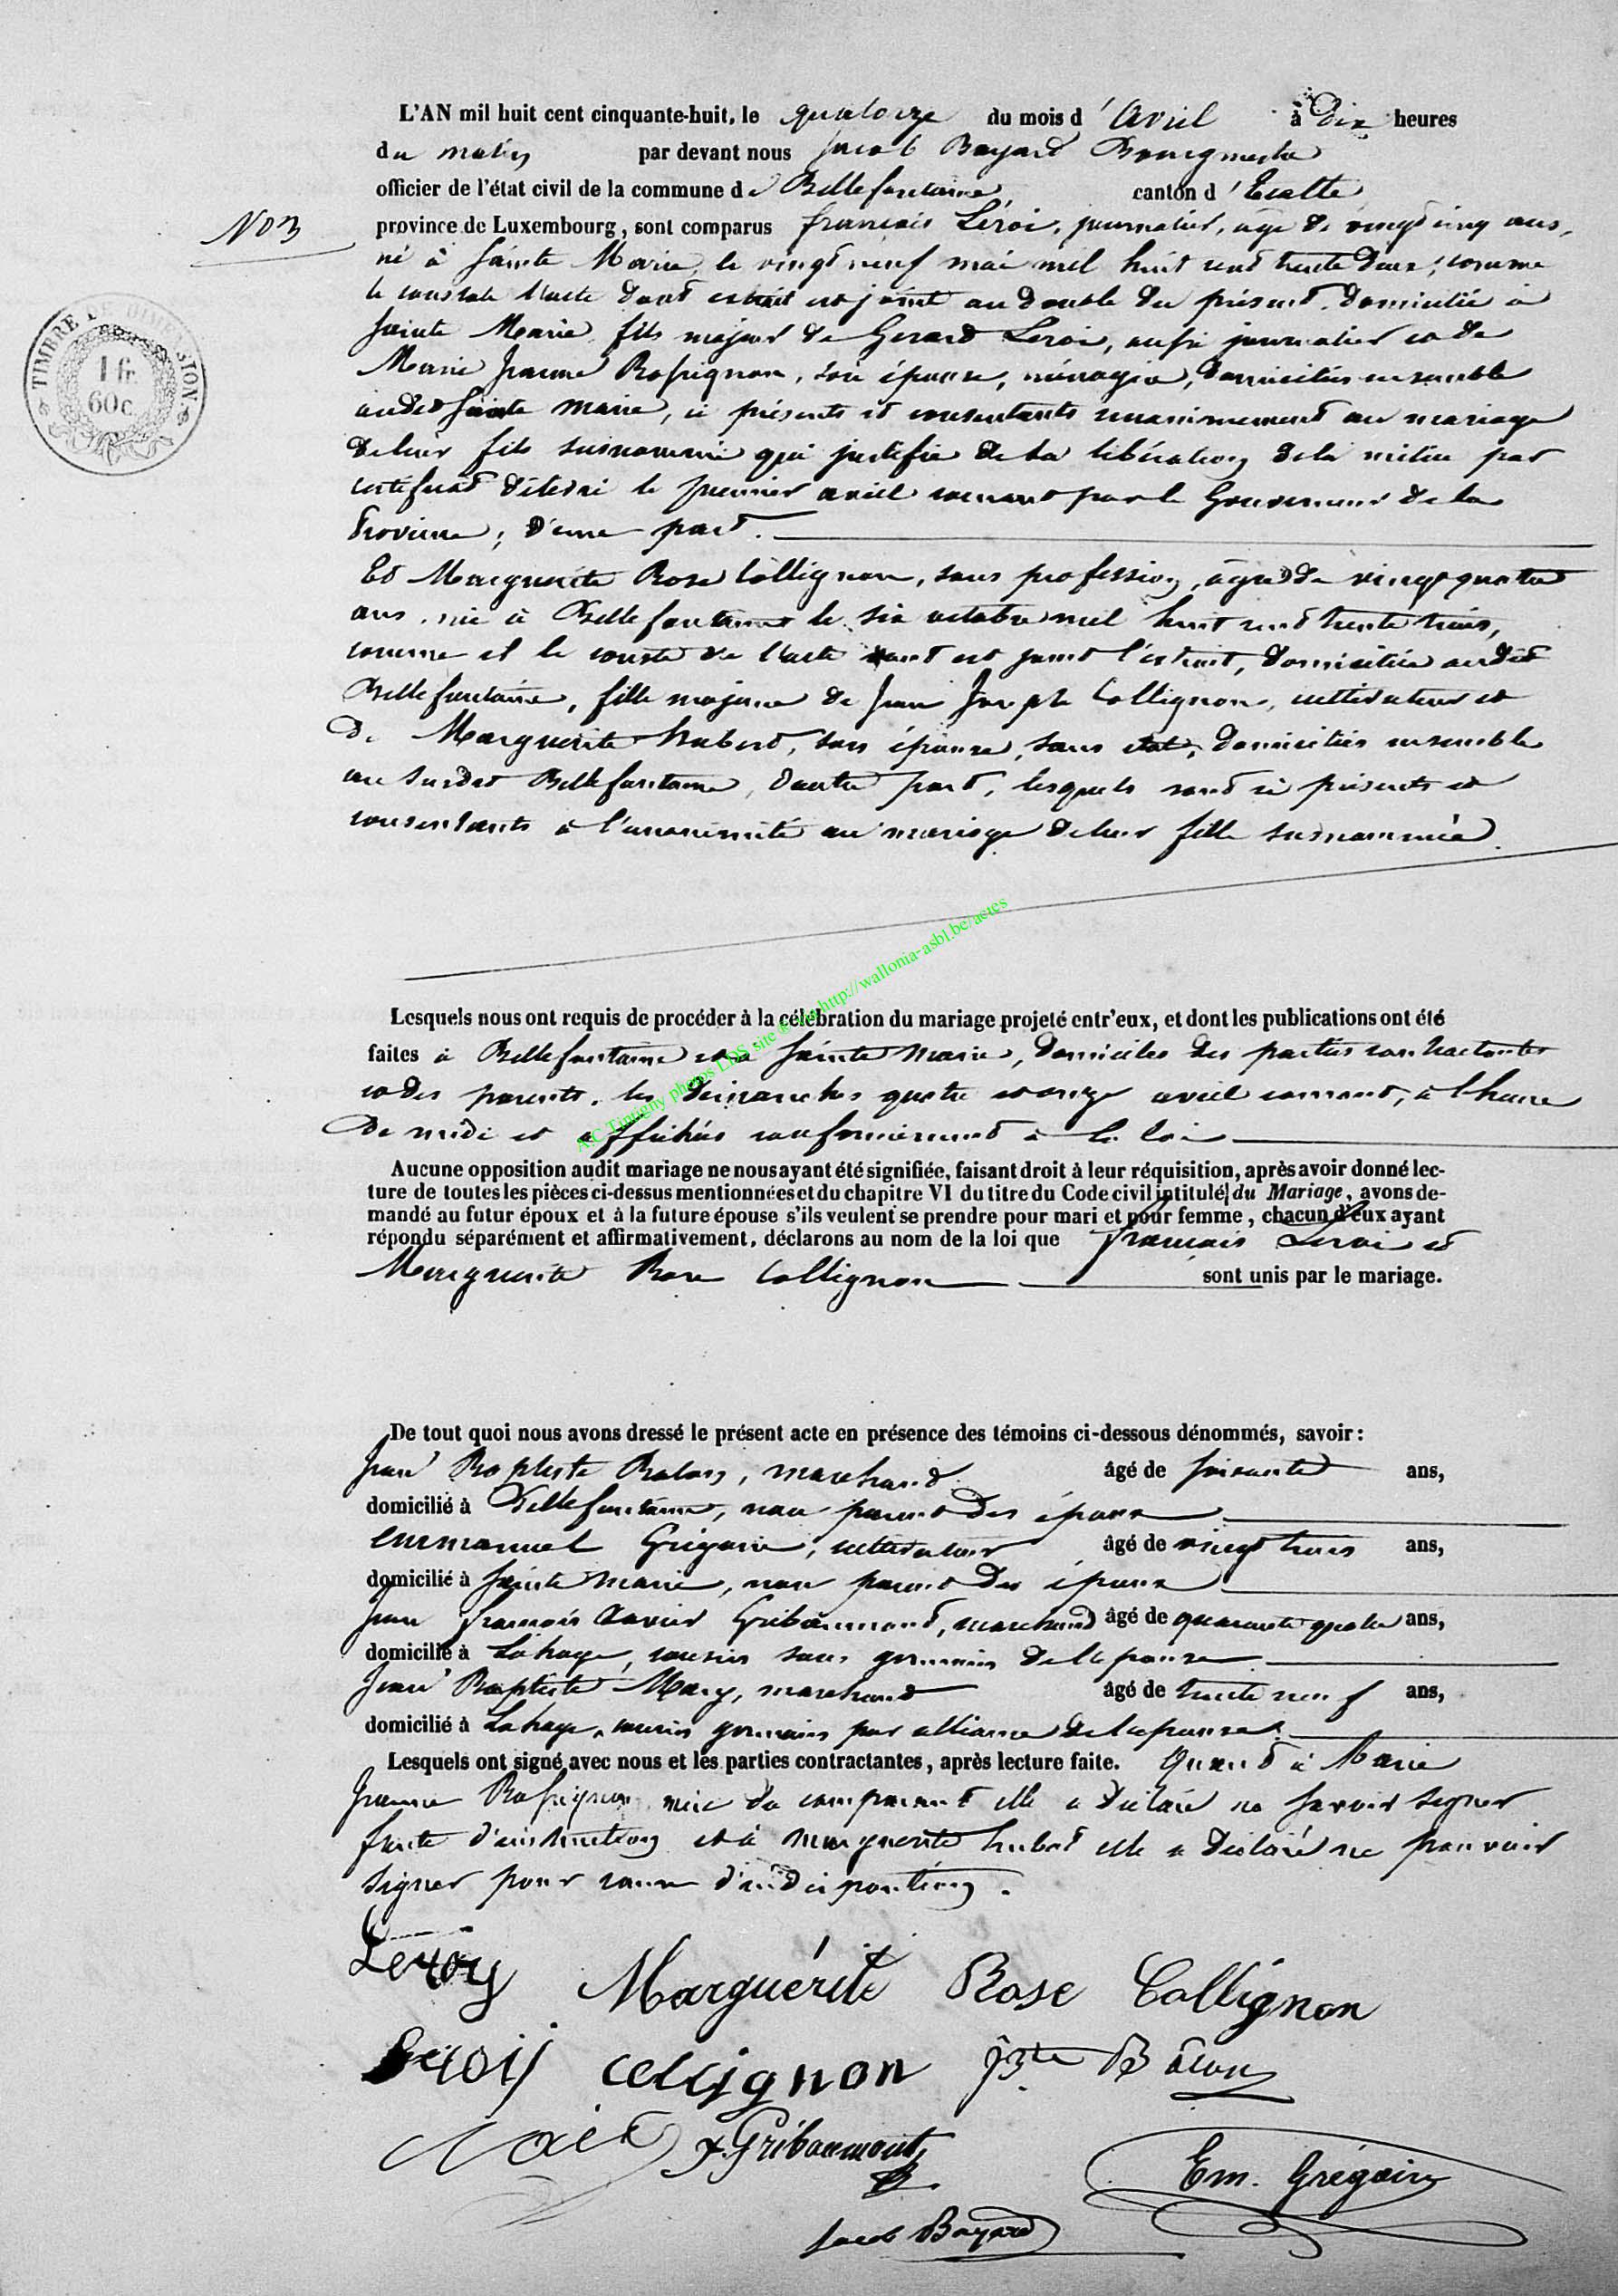 L'AN mil huit cent cinquante-huit, le quatorze du mois d'Avril à Dix heures
du matin par devant nous Jacob Bayard Bourgmestre
officier de l'état civil de la commune de Bellefontaine canton d'Etalle
No 3
province de Luxembourg, sont comparus François Léroi, journalier, âgé de vingt cinq ans,
né à Sainte Marie, le vingt neuf mai mil huit cent trente deux, comme
le constate l'acte dont extrait est joint au double du présent, domicilié à
Sainte Marie, fils majeur de Gerard Leroi, aussi journalier et de
Marie Jeanne Rossignon, son épouse, ménagère, domiciliés ensemble
audit Sainte Marie, ici présents et consentants unanimement au mariage
de leur fils susnommé qui justifie de sa libération de la milice par
certificat délivré le premier avril courant par le Gouverneur de la
Province; d'une part.
Et Marguerite Rose Collignon, sans profession, âgée de vingt quatre
ans, née à Bellefontaine le six octobre mil huit cent trente trois,
comme il le conste de l'acte dont est joint l'extrait, domiciliée audit
Bellefontaine, fille majeure de Jean Joseph Collignon, cultivateur et
de Marguerite Hubert, son épouse, sans état, domiciliés ensemble
au susdit Bellefontaine, d'autre part, lesquels sont ici présents et
consentants à l'unanimité au mariage de leur fille susnommée.
TIMBRE DE DIMENSION
1 fr.
60 c.
Lesquels nous ont requis de procéder à la célébration du mariage projeté entr'eux, et dont les publications ont été
faites à Bellefontaine et à Sainte Marie, domiciles des parties contractantes
et des parents, les dimanches quatre et onze avril courant, à l'heure
de midi et affichées conformément à la loi
Aucune opposition audit mariage ne nous ayant été signifiée, faisant droit à leur réquisition, après avoir donné lec-
ture de toutes les pièces ci-dessus mentionnées et du chapitre VI du titre du Code civil intitulé du Mariage, avons de-
mandé au futur époux et à la future épouse s'ils veulent se prendre pour mari et pour femme, chacun d'eux ayant
répondu séparément et affirmativement, déclarons au nom de la loi que François Leroi et
Marguerite Rose Collignon sont unis par le mariage.
De tout quoi nous avons dressé le présent acte en présence des témoins ci-dessous dénommés, savoir:
Jean Baptiste Balon, marchand âgé de soixante ans,
domicilié à Bellefontaine, non parent des époux
Emmanuel Grégoire, cultivateur âgé de vingt trois ans,
domicilié à Sainte Marie, non parent des époux
Jean François Xavier Gribaumont, marchand âgé de quarante quatre ans,
domicilié à Lahage, cousin sous germain de l'épouse
Jean Baptiste Mary, marchand âgé de trente neuf ans,
domicilié à Lahage, cousin germain par alliance de l'épouse.
Lesquels ont signé avec nous et les parties contractantes, après lecture faite. Quand à Marie
Jeanne Rossignon mère du comparant elle a déclaré ne savoir signer
faute d'instruction et à Marguerite Hubert elle a déclaré ne pouvoir
signer pour cause d'indisposition.
Leroy Marguérite Rose Collignon
Leroy collignon JBte Bâlon
X. Gribaumont
Em. Grégoire
Jacob Bayard
A.C. Tintigny photos EDS site http://wallonia-asbl.be/actes